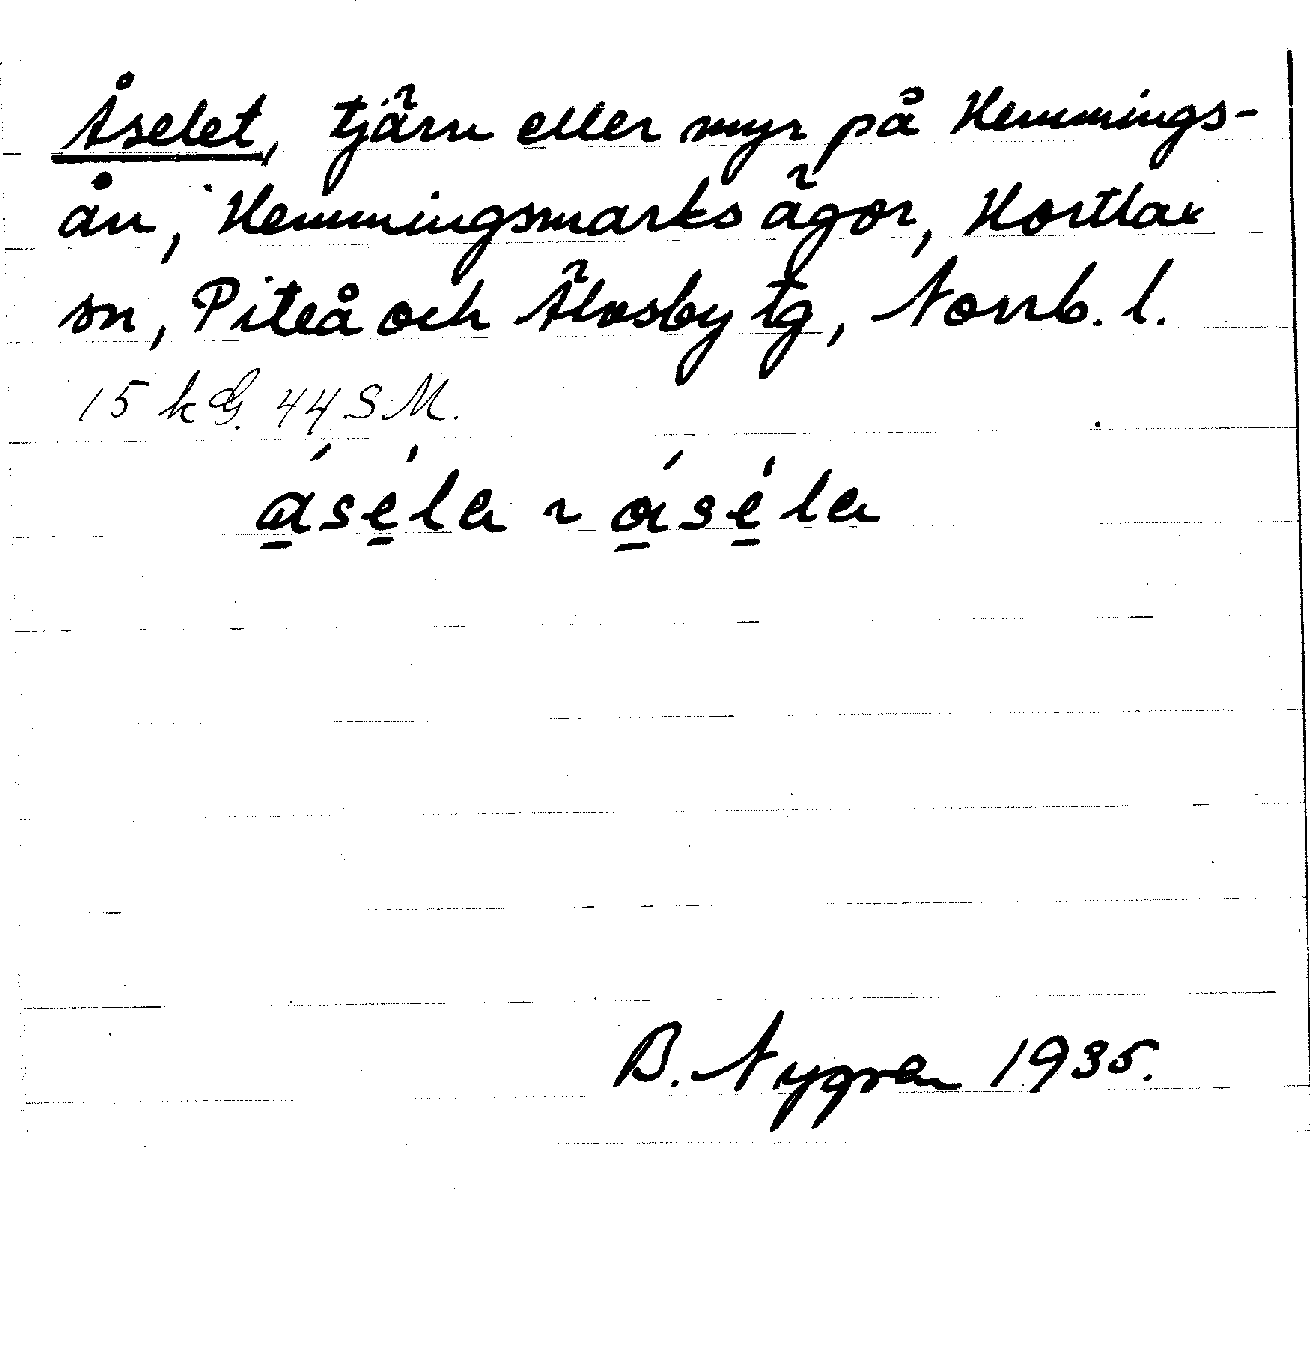 Åselet, tjärn eller myr på Hemmings-
ån, Hemmingsmarks ägor, Hortlax
sn, Piteå och Älvsby tg, Norrb. l.
15 k G. 44 S M.
åsela ~ åsela
B. Nygren 1935.